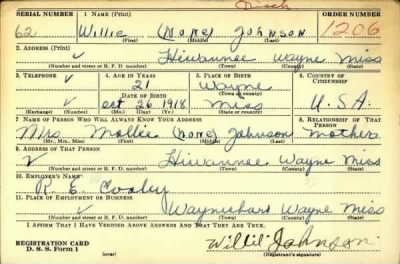 SERIAL NUMBER 1. NAME (Print) ORDER NUMBER
62 Willie (None) Johnson 1206
(First) (Middle) (Last)
2. ADDRESS (Print)
Hiwannee Wayne Miss
(Number and street or R. F. D. number) (Town) (County) (State)
3. TELEPHONE 4. AGE IN YEARS 5. PLACE OF BIRTH 6. COUNTRY OF CITIZENSHIP
21 Wayne
DATE OF BIRTH (Town or county)
Oct 26 1918 Miss U.S.A.
(Exchange) (Number) (Mo.) (Day) (Yr.) (State or country)
7. NAME OF PERSON WHO WILL ALWAYS KNOW YOUR ADDRESS 8. RELATIONSHIP OF THAT PERSON
Mrs Mollie (None) Johnson Mother
(Mr., Mrs., Miss) (First) (Middle) (Last)
9. ADDRESS OF THAT PERSON
Hiwannee Wayne Miss
(Number and street or R. F. D. number) (Town) (County) (State)
10. EMPLOYER'S NAME
R. E. Cooley
11. PLACE OF EMPLOYMENT OR BUSINESS
Waynesboro Wayne Miss
(Number and street or R. F. D. number) (Town) (County) (State)
I AFFIRM THAT I HAVE VERIFIED ABOVE ANSWERS AND THAT THEY ARE TRUE.
REGISTRATION CARD Willie Johnson
D. S. S. Form 1 (over) (Registrant's signature)